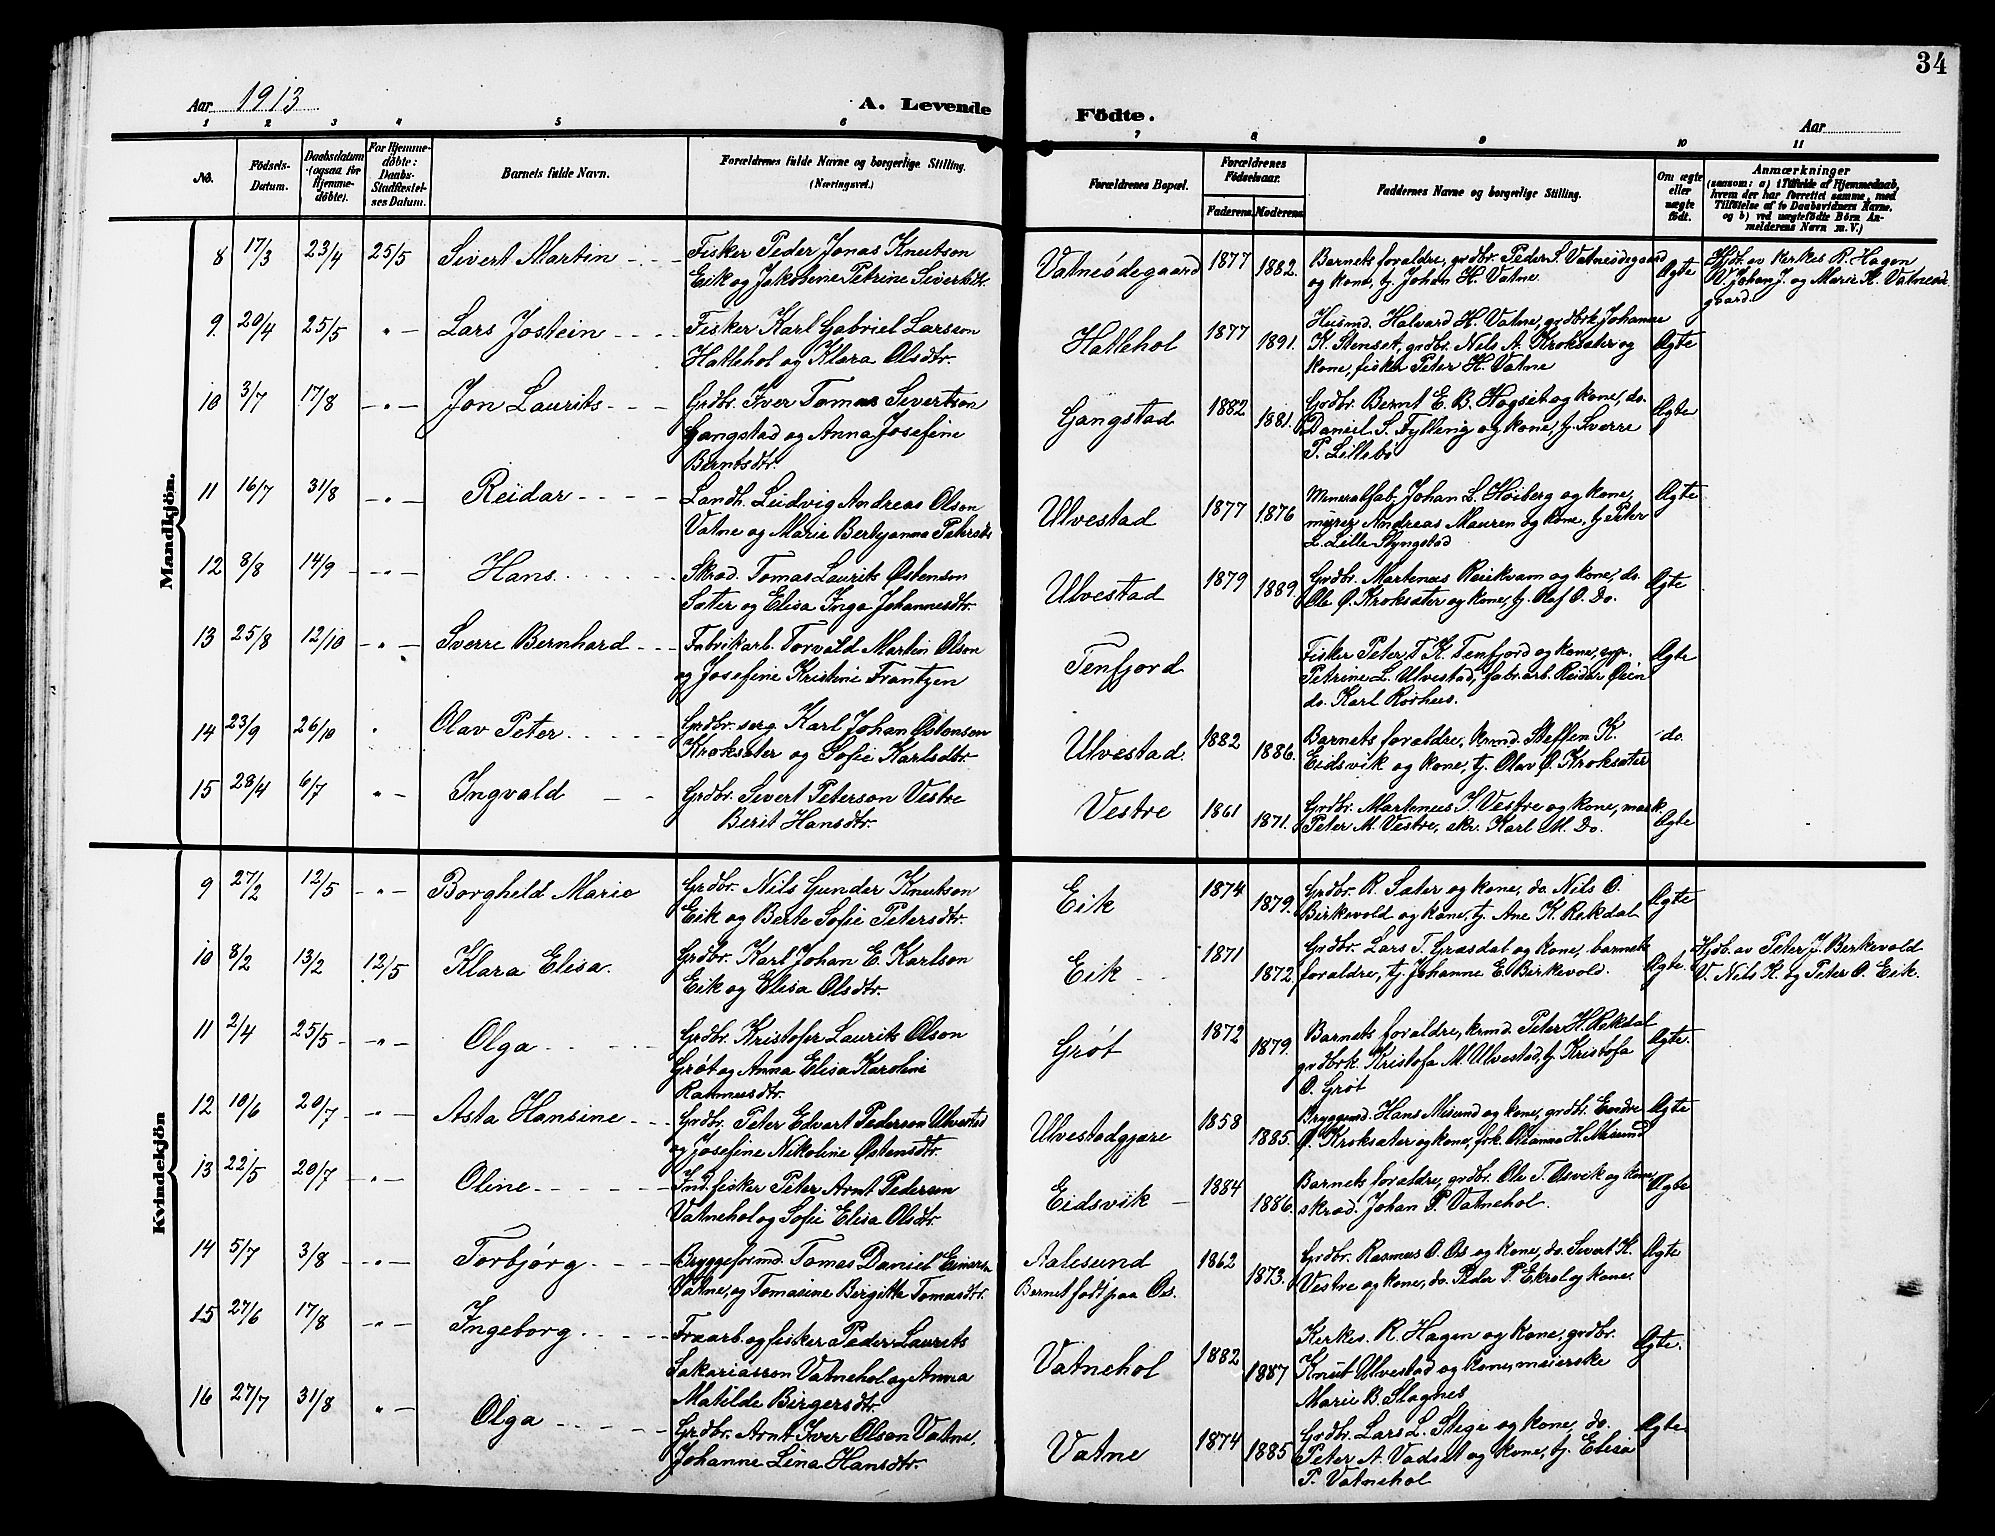 34
Aar 1913
A. Levende
Födte.
Aar
1 2 3 4 5 6 7 8 9 10 11
No.
Födsels-
Datum.
Daabsdatum
(ogsaa for
Hjemme-
döbte).
For Hjemme-
döbte:
Daabs-
Stadfæstel-
ses Datum.
Barnets fulde Navn.
Forældrenes fulde Navne og borgerlige Stilling.
(Næringsvei.)
Forældrenes Bopæl.
Forældrenes
Födselsaar.
Faderens. Moderens.
Faddernes Navne og borgerlige Stilling.
Om ægte
eller
uægte
födt.
Anmærkninger
(saasom: a) i Tilfælde af Hjemmedaab,
hvem der har forrettet samme, med
Tilföielse af to Daabsvidners Navne,
og b) ved uægtefödte Börn An-
melderens Navn m. V.)
Mandkjön.
8 17/3 23/4 25/5 Sivert Martin
Fisker Peder Jonas Knutson
Eik og Jakobine Petrine Sivertsdtr.
Vatneødegaard 1877 1882.
Barnets forældre, grdbr. Peder S. Vatneødegaard
og kone, tj. Johan H. Vatne.
Ægte
Hjdb. av kirkes R. Hagen
V. Johan J. og Marie K. Vatneød
gaard.
9. 20/4 25/5 " Lars Jostein
Fisker Karl Gabriel Larsson
Hatlehol og Klara Olsdtr.
Hatlehol 1877 1891.
Husmd. Halvard H. Vatne, grdbrk Johanne
K. Stenset, grdbr. Nils A. Kroksæter og
kone, fisker Peter H. Vatne
Ægte
10 3/7 17/8 " Jon Laurits
Grdbr. Iver Tomas Sivertson
Gangstad og Anna Josefine
Berntsdtr.
Gangstad 1882 1881.
Grdbr. Bernt E. B. Hogset og kone, do.
Daniel S. Fylling og kone, tj. Sverre
P. Lillebø
Ægte
11 16/7 31/8 " Reidar
Landh. Ludvig Andreas Olson
Vatne og Marie Berbjanna
Ulvestad 1877 1876
Mineralfab. Johan L. Høiberg og kone,
murer Andreas Mauren og kone, tj. Peter
L. Lille Slyngstad
Ægte
12 8/8 14/9 " Hans
Skræd. Tomas Laurits Østenson
Sæter og Elisa Inga Johannesdtr.
Ulvestad 1879 1889.
Grdbr. Martinus Reiekvam og kone, do.
Ole Ø. Kroksæter og kone, tj. Olaf O. Do.
Ægte
13 25/8 12/10 " Sverre Bernhard
Fabrikarb. Torvald Martin Olson
og Josefine Kristine Frantzen
Tenfjord
Fisker Peter T. K. Tenfjord og kone, syp.
Petrine L. Ulvestad, fabr. arb. Reidar Øien
do. Karl Rørhus.
Ægte
14 23/9 26/10 " Olav Peter
Grdbr. serg. Karl Johan Østenson
Kroksæter og Sofie Karlsdtr.
Ulvestad. 1882 1886.
Barnets forældre, krmd. Steffen K.
Eidsvik og kone, tj. Olav Ø. Kroksæter
do.
15 28/4 6/7 " Ingvald
Grdbr. Sivert Peterson Vestre
Berit Hansdtr.
Vestre 1861 1871.
Grdbr. Martinus I. Vestre og kone, mask.
Peter M. Vestre, skr. Karl M. Do.
Ægte
Kvindekjön
9 27/2 12/5 " Borghild Marie
Grdbr. Nils Gunder Knutson
Eik og Berte Sofie Petersdtr.
Eik 1874 1879.
Grdbr. R. Sæter og kone, do. Nils O.
Birkevold og kone, tj. Ane K. Rekdal
Ægte
10 8/2 13/2 12/5 Klara Elisa.
Grdbr. Karl Johan E. Karlson
Eik og Elisa Olsdtr.
Eik 1871 1872.
Grdbr. Lars T. Græsdal og kone, barnets
forældre, tj. Johanne E. Birkevold.
Ægte.
Hjdb. av Peter J. Berkevold
V. Nils K. og Peter O. Eik.
11 2/4 25/5 " Olga
Grdbr. Kristofer Laurits Olson
Grøt og Anna Elisa Karoline
Rasmusdtr.
Grøt 1872 1879.
Barnets forældre, krmd. Peter H. Rekdal
grdbrk. Kristofa M. Ulvestad, tj. Kristofa
O. Grøt
Ægte.
12 10/6 20/7 " Asta Hansine
Grdbr. Peter Edvart Pederson Ulvestad
og Josefine Nikoline Østensdtr.
Ulvestadgjære 1858 1885.
Bryggemd. Hans Misund og kone, grdbr. Endre
Ø. Kroksæter og kone, frk. Oleanna H. Misund
Ægte
13 22/5 20/7 " Oline
Ind. fisker Peter Arnt Pederson
Vatnehol og Sofie Elisa Olsdtr.
Eidsvik 1884 1886.
Barnets forældre, grdbr. Ole T. Osvik og kone
skræd. Johan P. Vatnehol.
Ægte
14 5/7 3/8 " Torbjørg
Bryggeformd. Tomas Daniel Einarsn
Vatne, og Tomasine Birgitte Tomasdtr.
Aalesund
Barnet født paa Os.
1862 1873.
Grdbr. Rasmus O. Os og kone, do. Sivert K.
Vestre og kone, do. Peder P. Ekrol og kone.
Ægte
15 27/6 17/8 " Ingeborg
Træarb. og fisker Peder Laurits
Sakariassen Vatnehol og Anna
Matilde Birgersdtr.
Vatnehol 1882 1887
Kirkes. R. Hagen og kone, grdbr.
Knut Ulvestad og kone, meierske
Marie B. Slagnes
Ægte.
16 27/7 31/8 " Olga
Grdbr. Arnt Iver Olson Vatne,
Johanne Lina Hansdtr.
Vatne 1874 1885
Grdbr. Lars L. Stige og kone, do.
Peter A. Vadset og kone, tj. Elisa
P. Vatnehol
Ægte